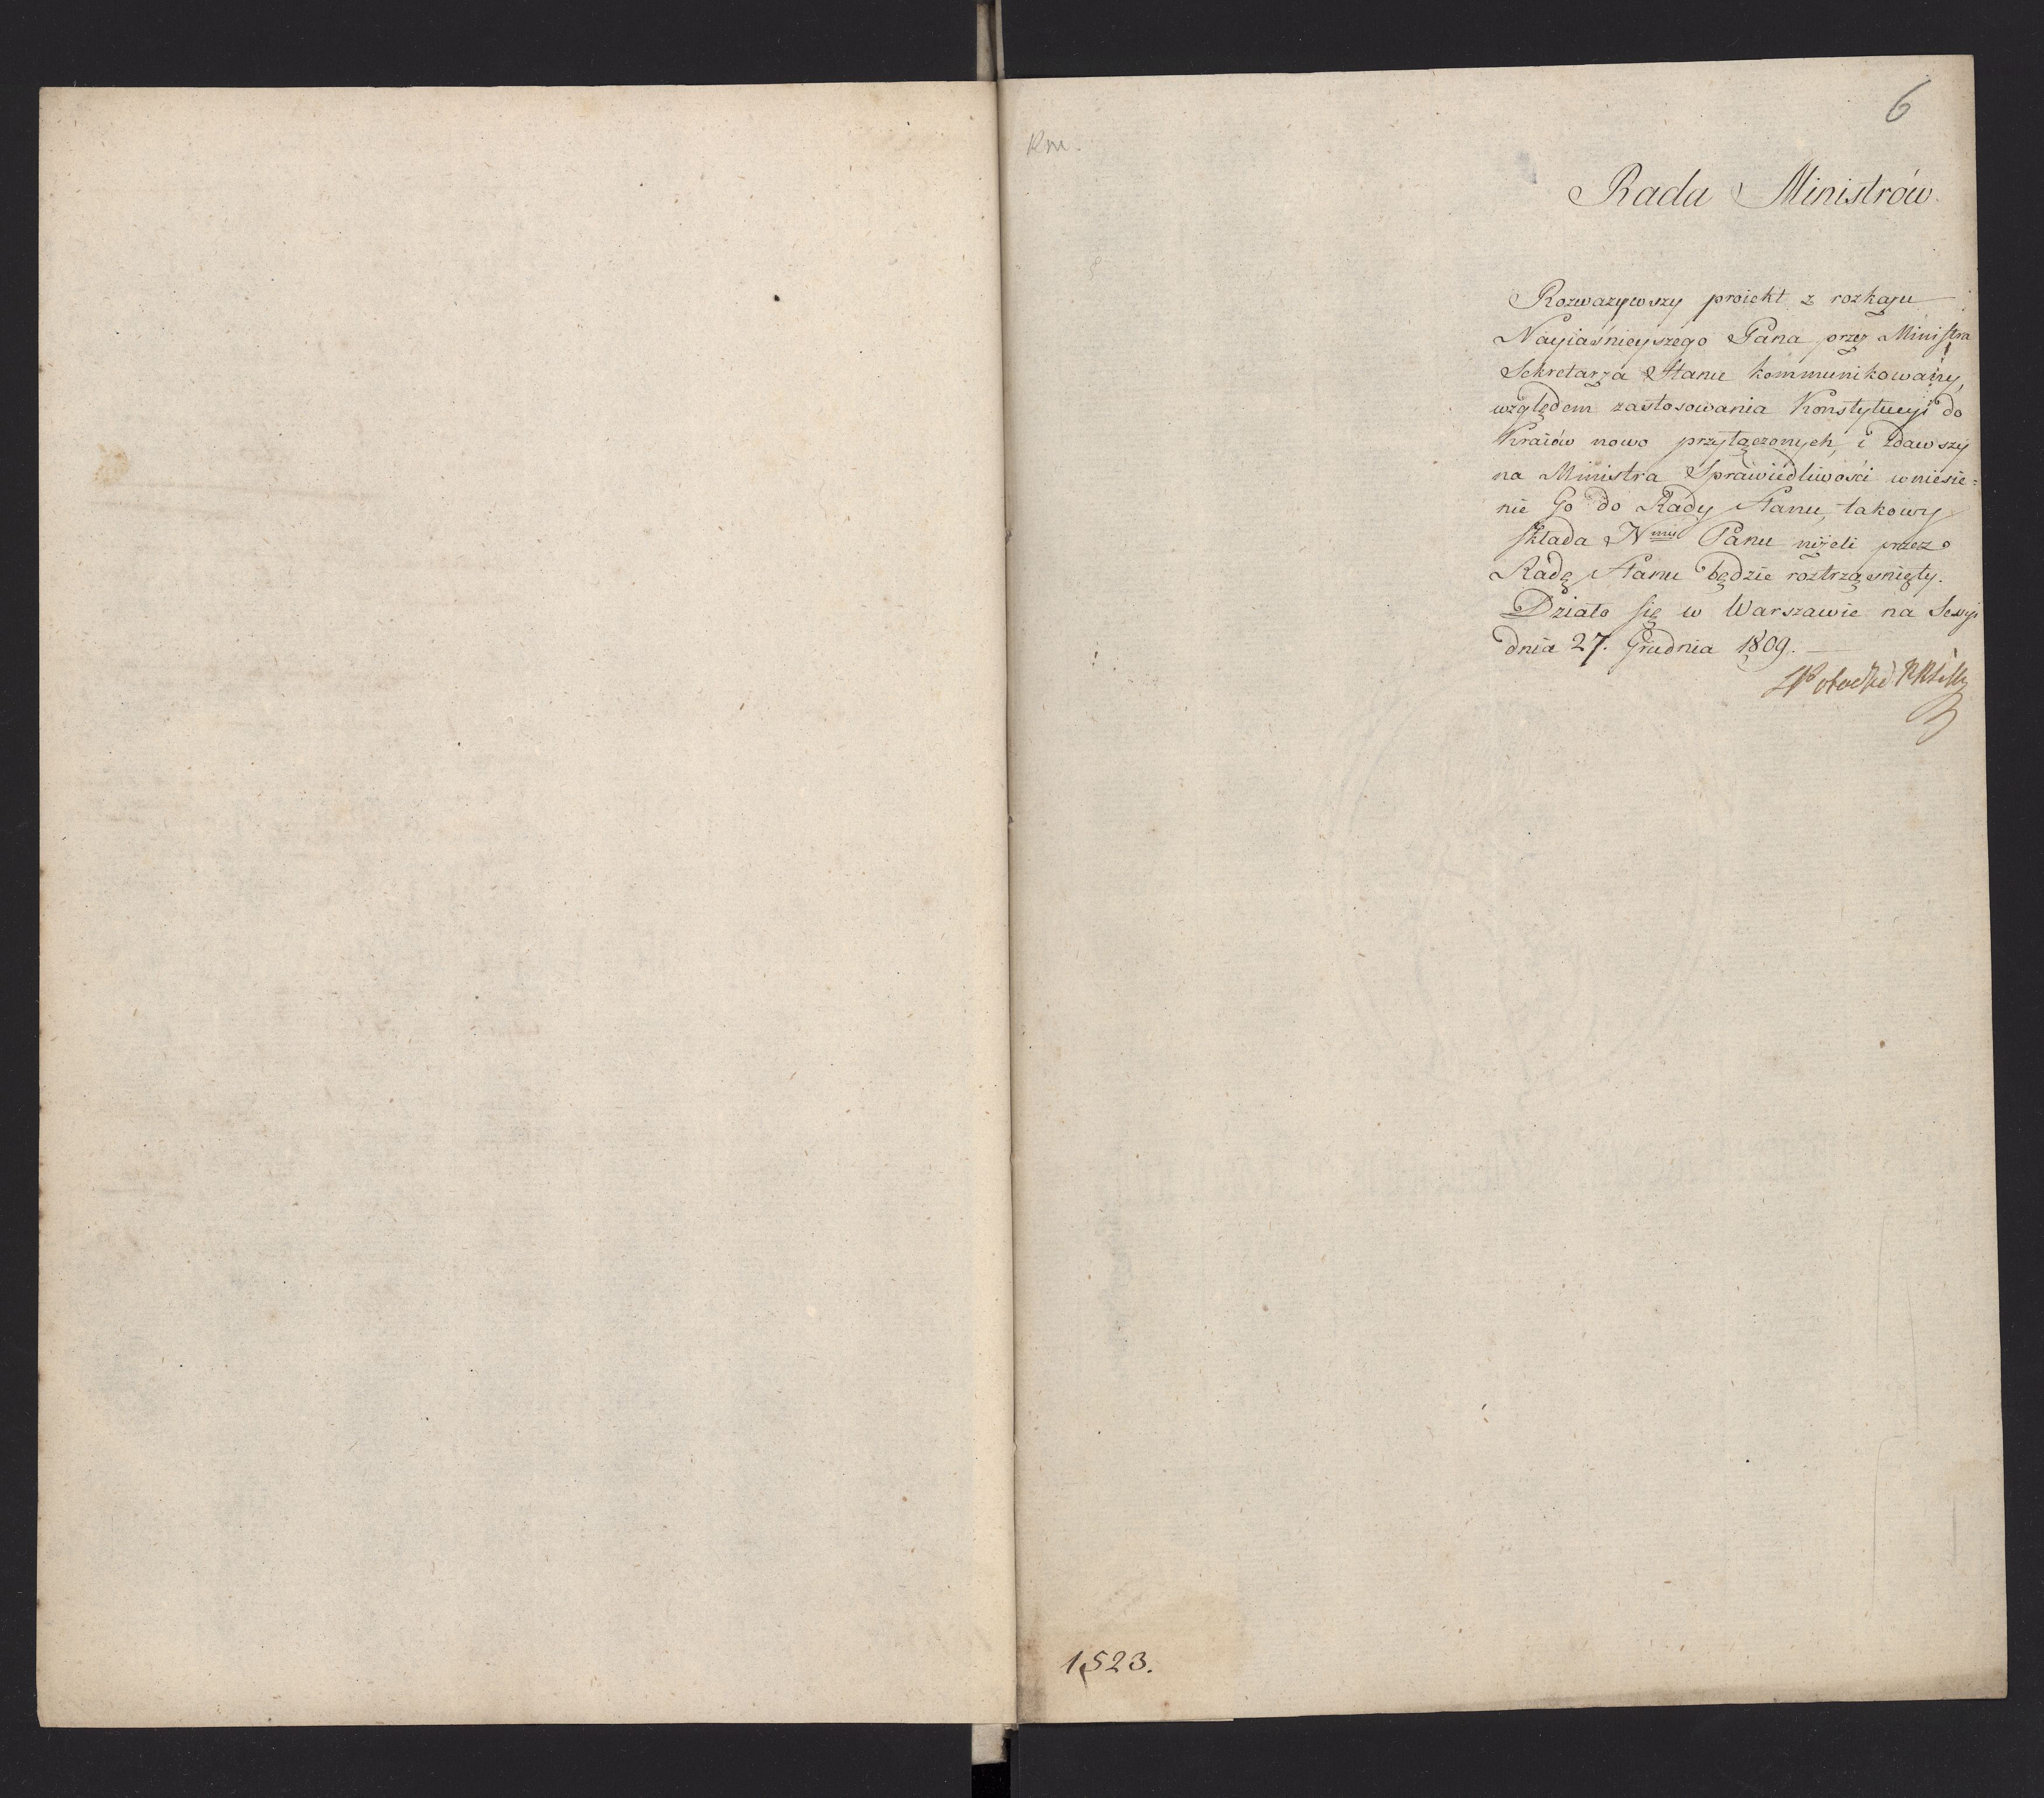 6
Rm.
Rada Ministrów.
Rozważywszy proiekt z rozkazu
Nayiaśnieyszego Pana przez Ministra
Sekretarza Stanu kommunikowany,
względem zastosowania Konstytucyi do
Kraiów nowo przyłączonych, i zdawszy
na Ministra Sprawiedliwości wniesie=
nie Go do Rady Stanu, takowy
składa Nmu Panu niżeli przez
Radę Stanu będzie roztrząśnięty.
Działo się w Warszawie na Sessyi
dnia 27. Grudnia 1809.
1,523.